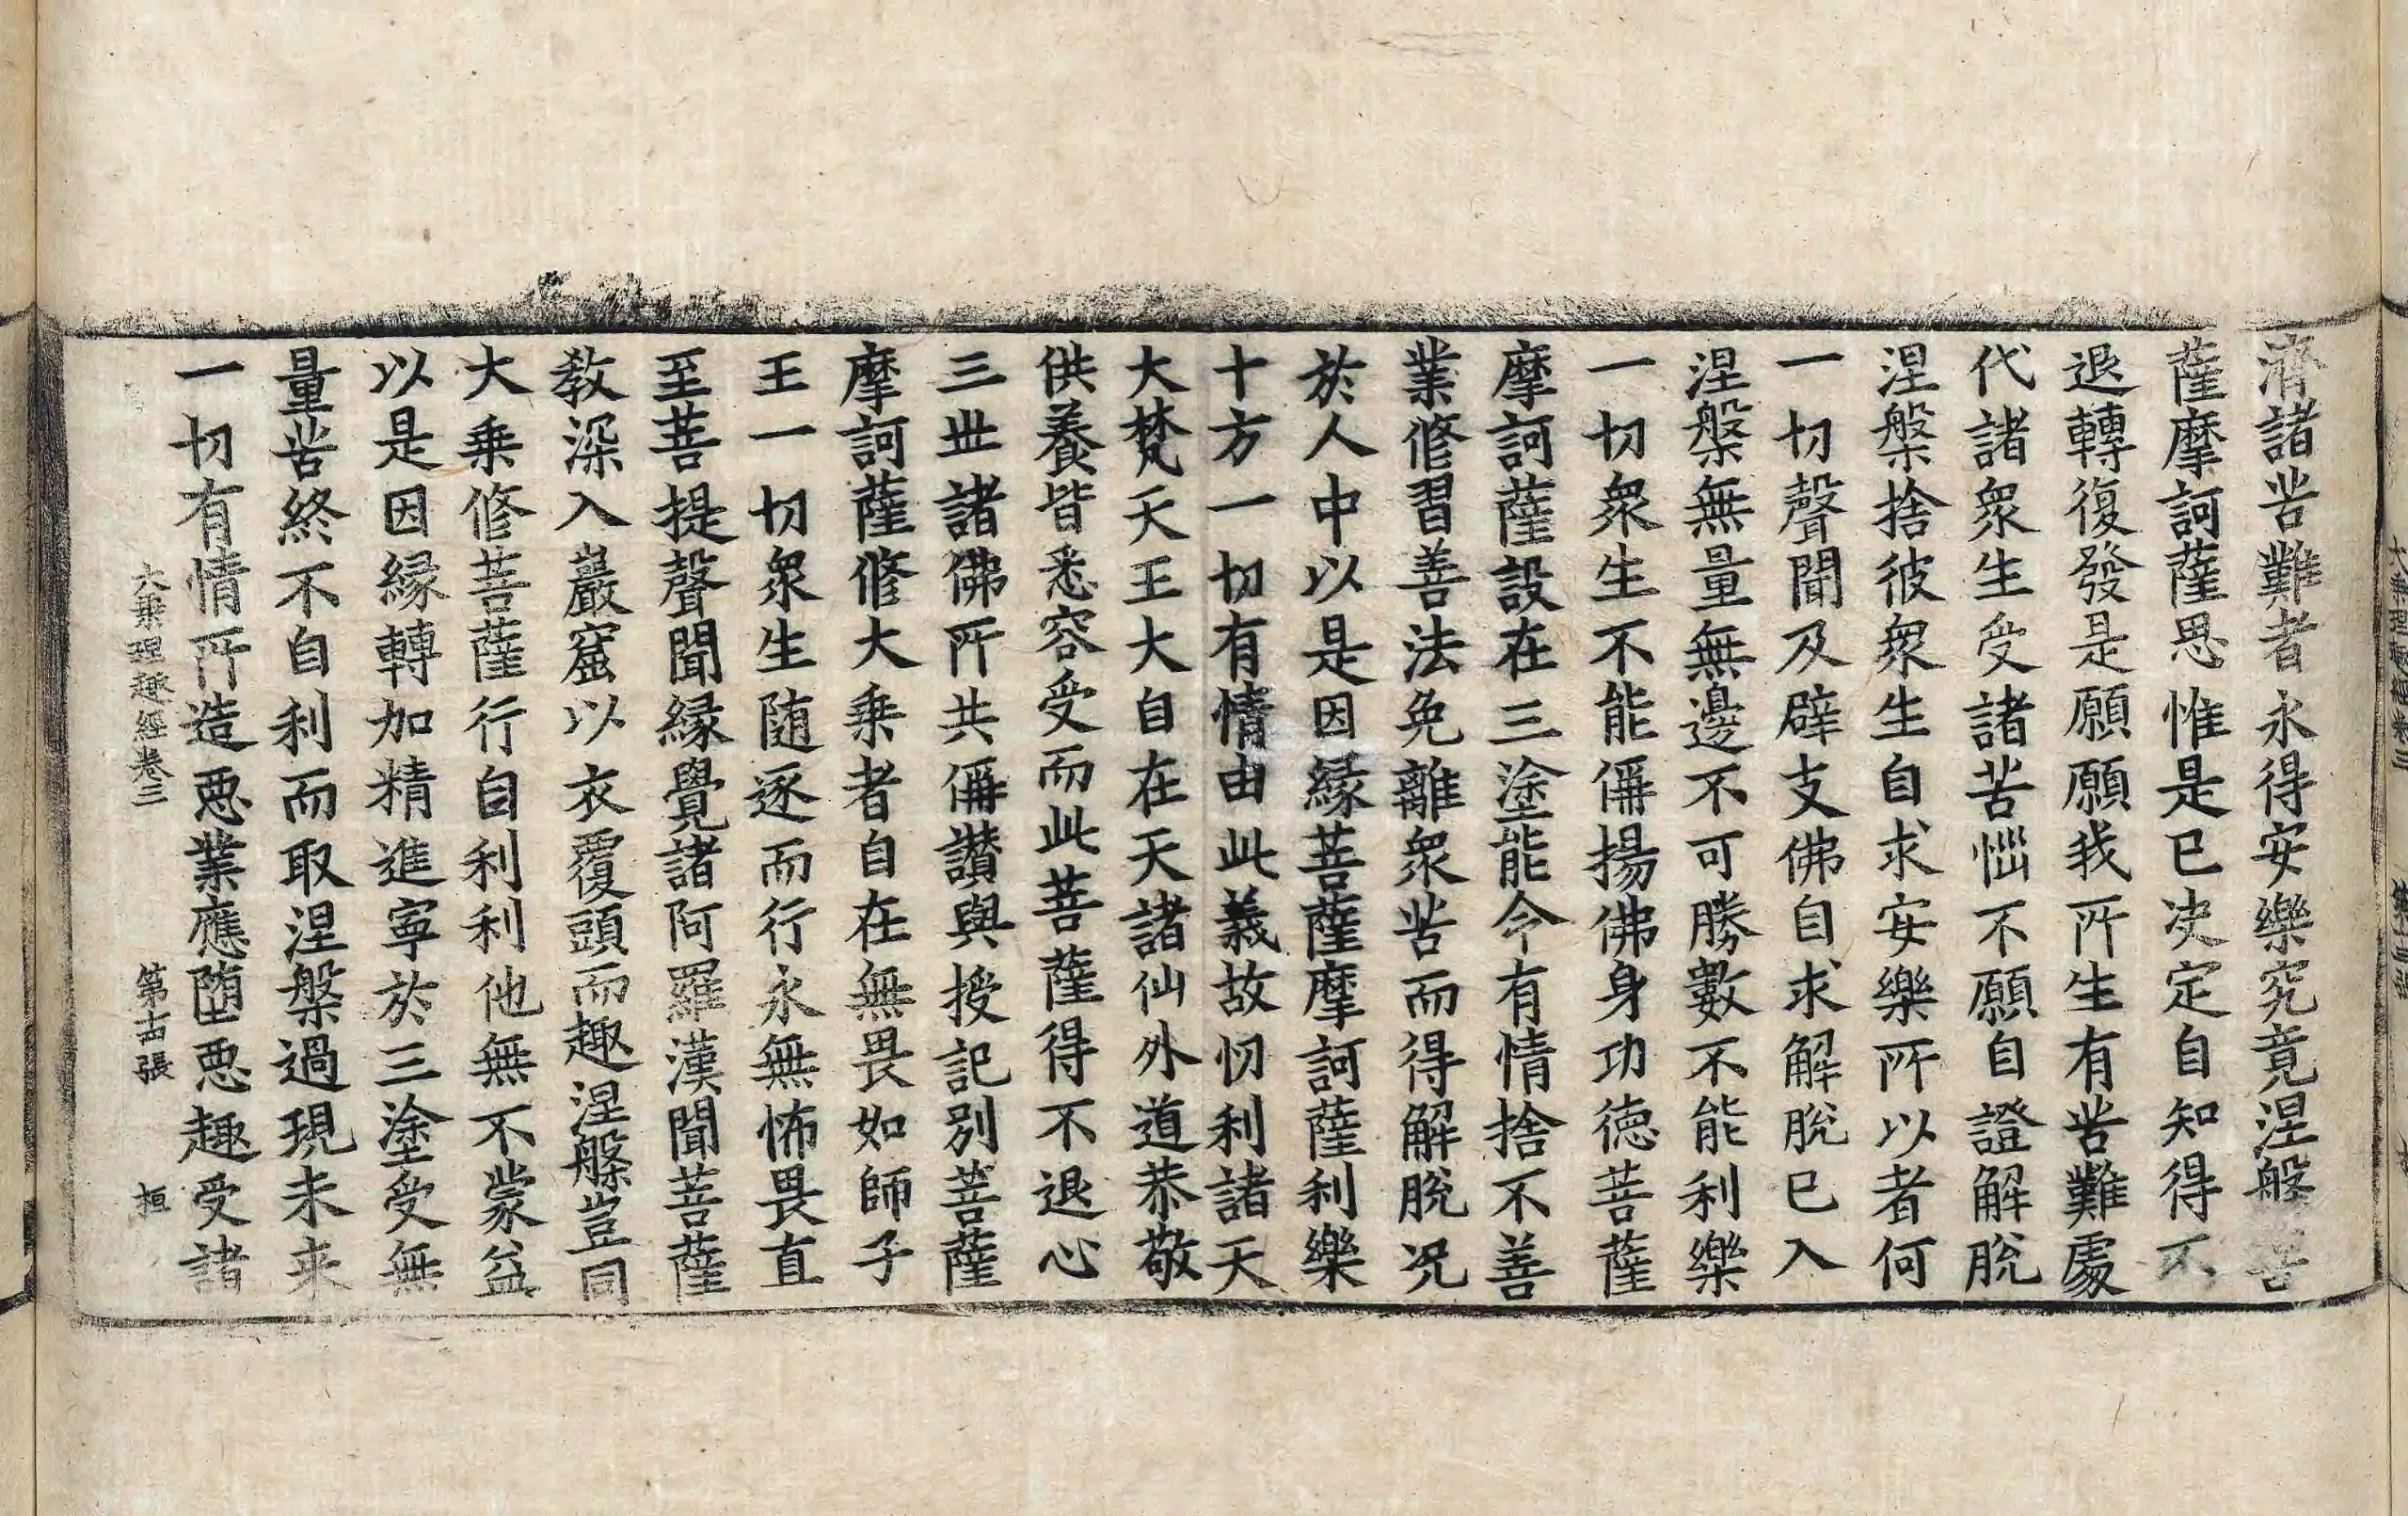 濟諸苦難者永得安樂究竟涅槃菩
薩摩訶薩思惟是已决定自知得不
退轉復發是願願我所生有苦難處
代諸衆生受諸苦惱不願自證解脫
涅槃捨彼衆生自求安樂所以者何
一切聲聞及辟支佛自求解脫已入
涅槃無量無邊不可勝數不能利樂
一切衆生不能稱揚佛身功德菩薩
摩訶薩設在三塗能令有情捨不善
業修習善法免離衆苦而得解脫况
於人中以是因縁菩薩摩訶薩利樂
十方一切有情由此義故忉利諸天
大梵天王大自在天諸仙外道恭敬
供養皆悉容受而此菩薩得不退心
三世諸佛所共稱讃與授記別菩薩
摩訶薩修大乗者自在無畏如師子
王一切衆生随逐而行永無怖畏直
至菩提聲聞縁覺諸阿羅漢聞菩薩
教深入巖窟以衣覆頭而趣涅槃豈同
大乗修菩薩行自利利他無不蒙益
以是因縁轉加精進寧於三塗受無
量苦終不自利而取涅槃過現未来
一切有情所造惡業應堕惡趣受諸
大乗理趣經卷三　第十四張　桓